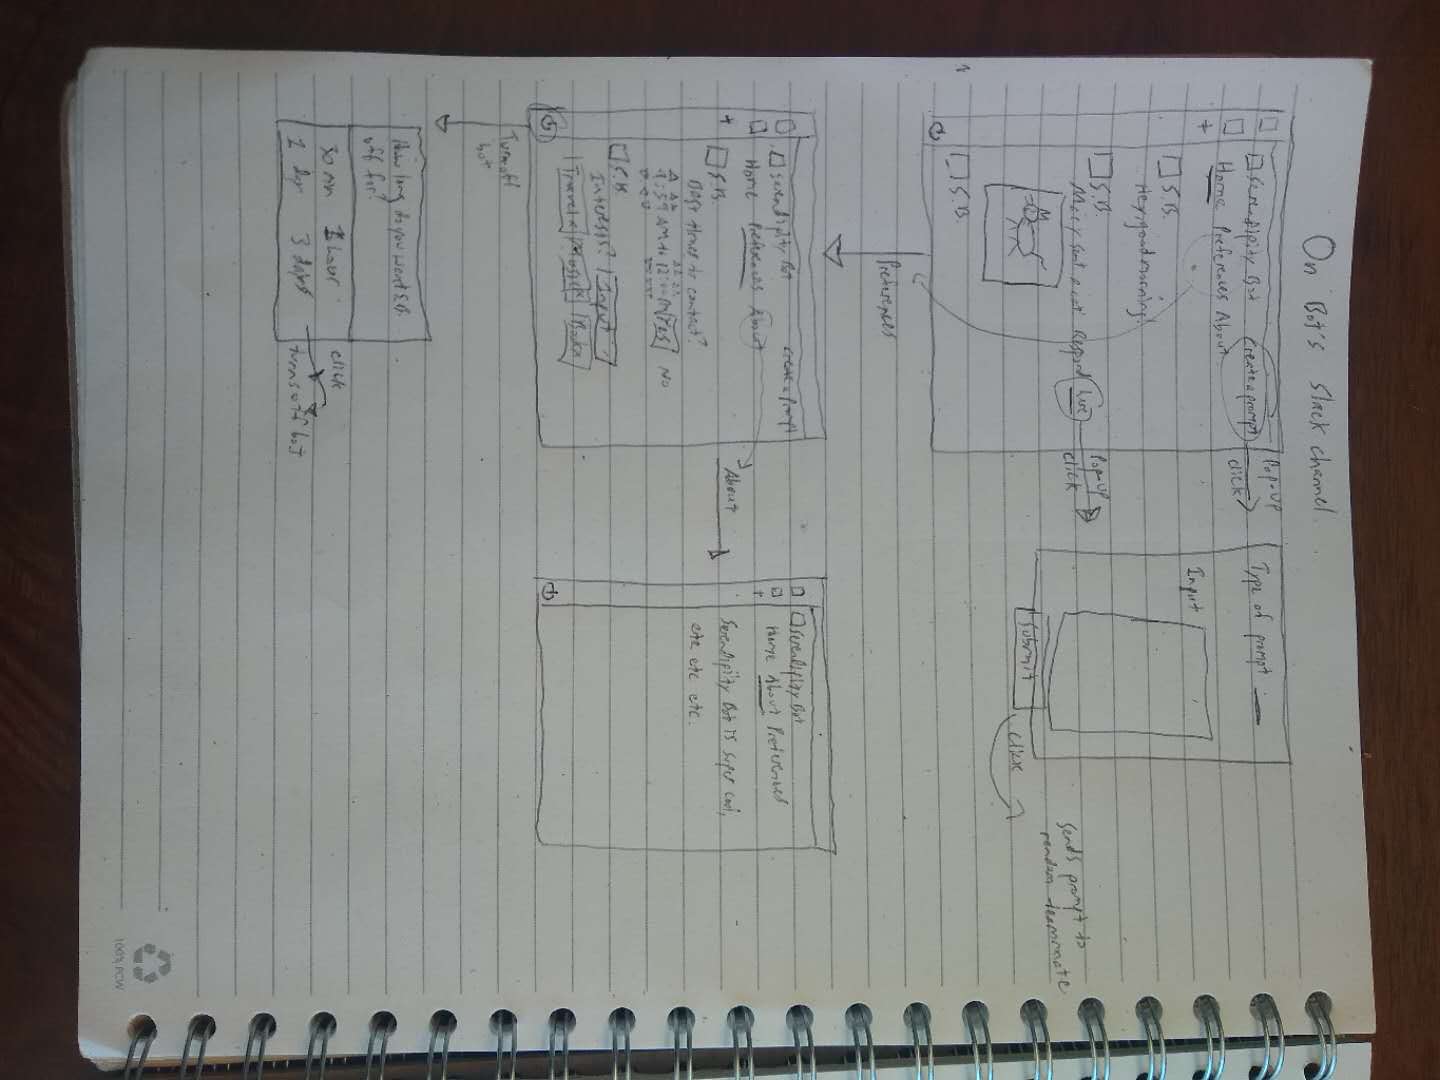 On Bot's Slack channel
Serendipity Bot
Create a prompt
Pop-up
click
Home Preferences About
S.B.
Hey, good morning!
S.B.
sent a cat Respond here
Pop-up
click
S.B.
Type of prompt
Input
Submit
click
Sends prompt to
random teammate
Preferences
Serendipity Bot
Create a prompt
Home Preferences About
S.B.
Best times to contact?
9:59 AM to 12:00 Yes No
S.B.
Interests? Input
Travel x Music x Book x
About
Serendipity Bot
Home About Preferences
Serendipity Bot is super cool,
etc etc etc.
Turn off
bot
How long do you want S.B.
off for?
30 min 1 hour
1 day 3 days
click
turns off bot
100% PCW